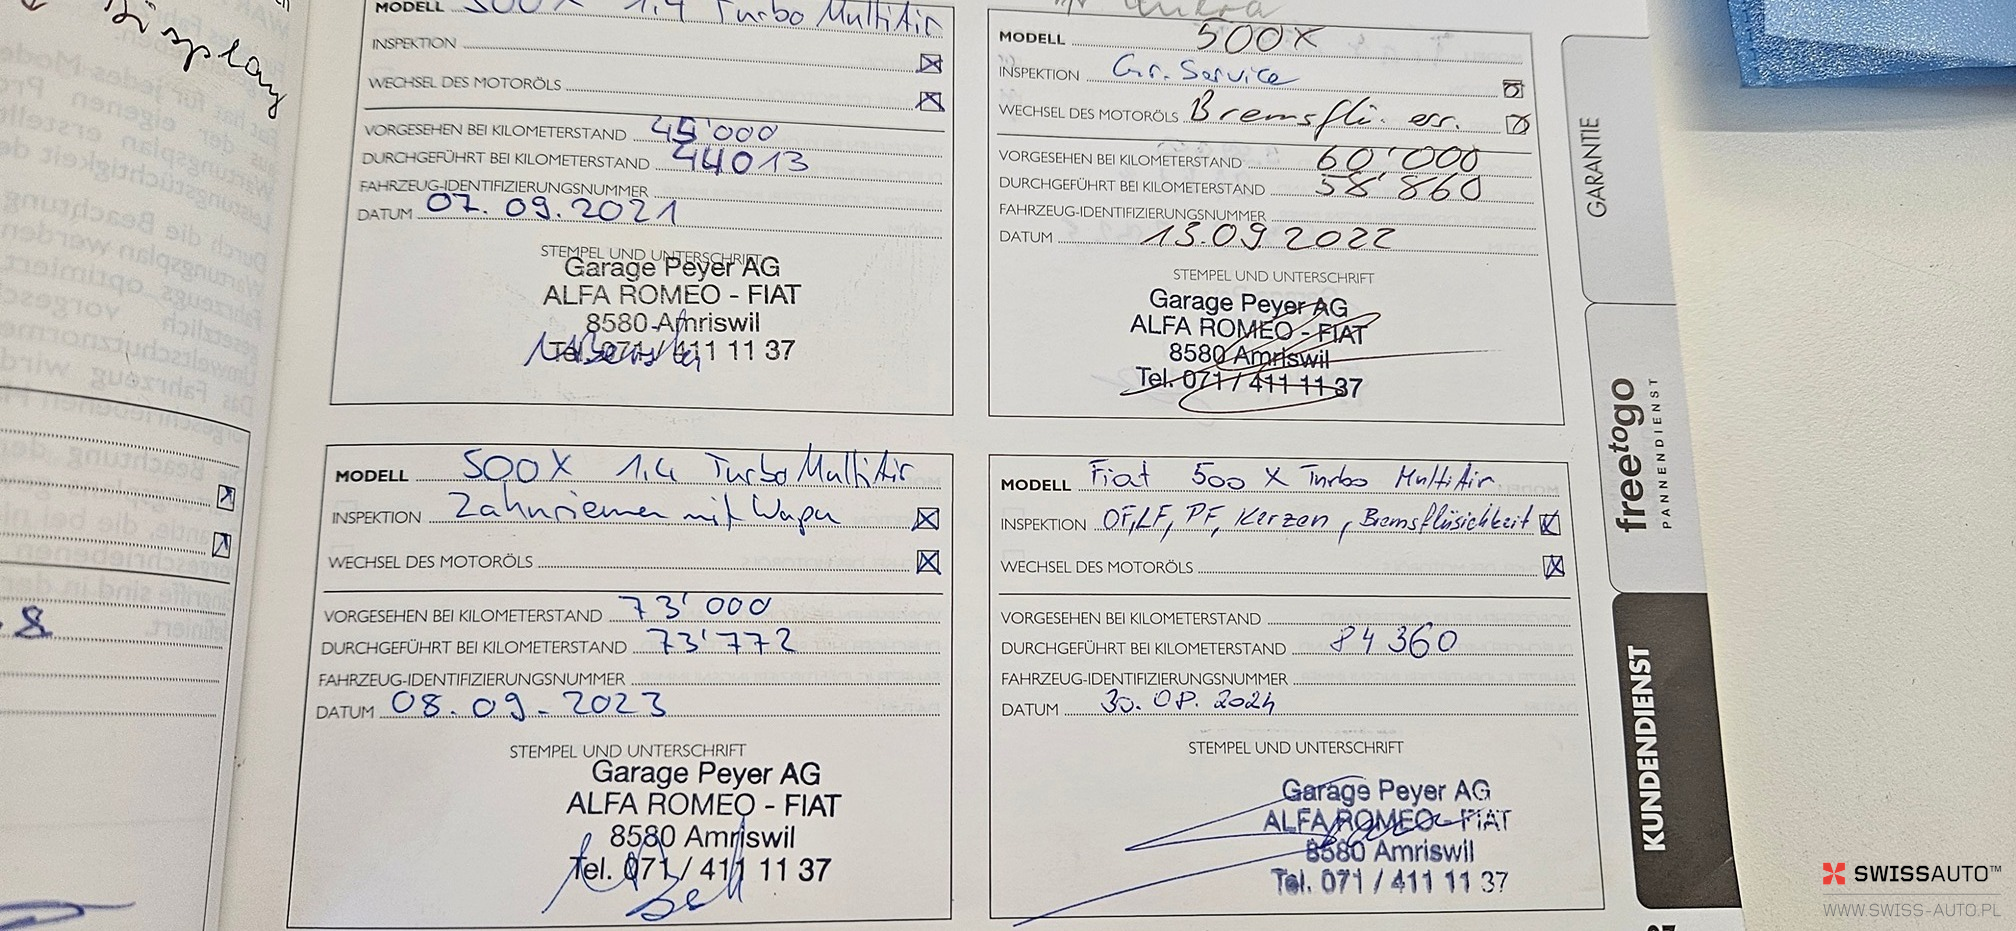 Display
MODELL 500X 1.4 Turbo MultiAir
INSPEKTION
WECHSEL DES MOTORÖLS
VORGESEHEN BEI KILOMETERSTAND 45'000
DURCHGEFÜHRT BEI KILOMETERSTAND 44013
FAHRZEUG-IDENTIFIZIERUNGSNUMMER
DATUM 07.09.2021
STEMPEL UND UNTERSCHRIFT
Garage Peyer AG
ALFA ROMEO - FIAT
8580 Amriswil
Tel. 071 / 411 11 37
MODELL 500X
INSPEKTION Gr. Service
WECHSEL DES MOTORÖLS Bremsflü. er.
VORGESEHEN BEI KILOMETERSTAND 60'000
DURCHGEFÜHRT BEI KILOMETERSTAND 58'860
FAHRZEUG-IDENTIFIZIERUNGSNUMMER
DATUM 13.09.2022
STEMPEL UND UNTERSCHRIFT
Garage Peyer AG
ALFA ROMEO - FIAT
8580 Amriswil
Tel. 071 / 411 11 37
MODELL 500X 1.4 Turbo MultiAir
INSPEKTION Zahnriemen mit Wapu
WECHSEL DES MOTORÖLS
VORGESEHEN BEI KILOMETERSTAND 73'000
DURCHGEFÜHRT BEI KILOMETERSTAND 73'772
FAHRZEUG-IDENTIFIZIERUNGSNUMMER
DATUM 08.09.2023
STEMPEL UND UNTERSCHRIFT
Garage Peyer AG
ALFA ROMEO - FIAT
8580 Amriswil
Tel. 071 / 411 11 37
MODELL Fiat 500 X Turbo MultiAir
INSPEKTION OF, LF, PF, Kerzen, Bremsflüsichkeit
WECHSEL DES MOTORÖLS
VORGESEHEN BEI KILOMETERSTAND
DURCHGEFÜHRT BEI KILOMETERSTAND 84360
FAHRZEUG-IDENTIFIZIERUNGSNUMMER
DATUM 30.08.2024
STEMPEL UND UNTERSCHRIFT
Garage Peyer AG
ALFA ROMEO - FIAT
8580 Amriswil
Tel. 071 / 411 11 37
GARANTIE
freetogo
PANNENDIENST
KUNDENDIENST
SWISSAUTO™
WWW.SWISS-AUTO.PL